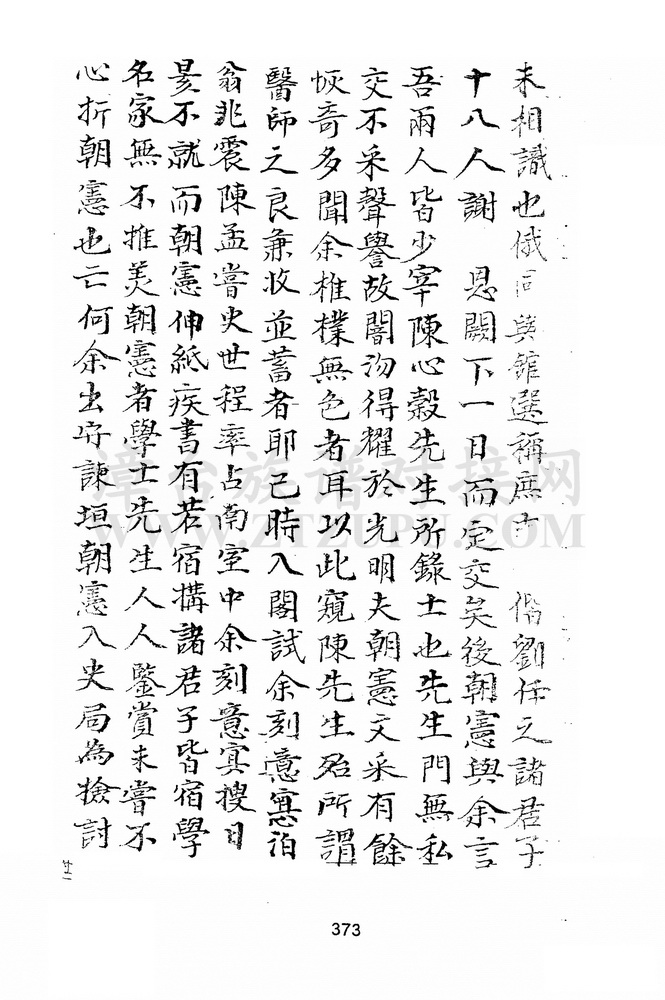 未相識也俄同與館選稱庶 偕劉任之諸君子
十八人謝 恩闕下一日而定交矣後朝憲與余言
吾兩人皆少宰陳心穀先生所錄士也先生門無私
交不采聲譽故闇汮得耀於光明夫朝憲文采有餘
恢奇多聞余椎樸無色者耳以此窺陳先生殆所謂
醫師之良兼收並蓄者耶已時入閣試余刻意寞泊
翁兆震陳孟嘗史世程率占南室中余刻意寞搜日
晏不就而朝憲伸紙疾書有若宿搆諸君子皆宿學
名家無不推羡朝憲者學士先生人人鑒賞未嘗不
心折朝憲也亡何余出守諫垣朝憲入史局為撿討
廿一
373
漳台族谱对接网
WWW.ZTZUPU.COM